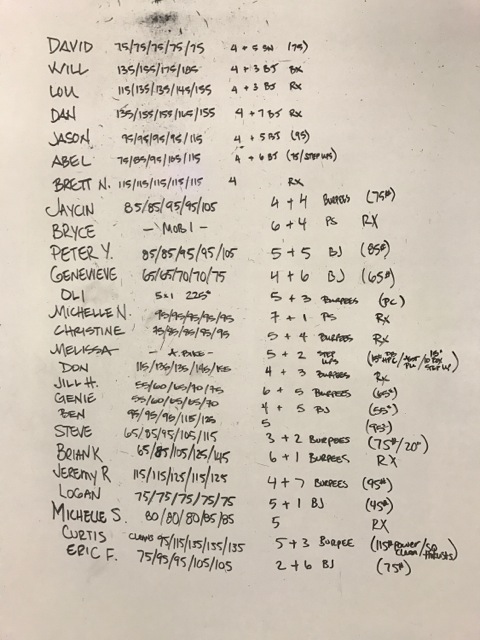 DAVID 75/75/75/75/75 4 + 5 SN (75)
WILL 135/155/175/185 4 + 3 BJ RX
LOU 115/135/135/145/155 4 + 3 BJ RX
DAN 135/155/155/165/155 4 + 7 BJ RX
JASON 95/95/95/95/115 4 + 5 BJ (95)
ABEL 75/85/95/105/115 4 + 6 BJ (75/STEP UPS)
BRETT N. 115/115/115/115/115 4 RX
JAYCIN 85/85/95/95/105 4 + 4 BURPEES (75#)
BRYCE - MOB 1 - 6 + 4 PS RX
PETER Y. 85/85/95/95/105 5 + 5 BJ (85#)
GENEVIEVE 65/65/70/70/75 4 + 6 BJ (65#)
OLI 5x1 225# 5 + 3 BURPEES (PC)
MICHELLE N. 95/95/95/95/95 7 + 1 PS RX
CHRISTINE 75/85/95/95/95 5 + 4 BURPEES RX
MELISSA - A. BIKE - 5 + 2 STEP UPS
DON 115/135/135/145/155 4 + 3 BURPEES RX
JILL H. 55/60/65/70/75 6 + 5 BURPEES (65#)
GENIE 55/60/65/65/70 4 + 5 BJ (55#)
BEN 95/95/95/115/125 5 (95#)
STEVE 65/85/95/105/115 3 + 2 BURPEES (75#/20")
BRIAN K 65/85/105/125/145 6 + 1 BURPEES RX
JEREMY R 115/115/125/115/125 4 + 7 BURPEES (95#)
LOGAN 75/75/75/75/75 5 + 1 BJ (45#)
MICHELLE S. 80/80/80/85/85 5 RX
CURTIS CLEANS 95/115/135/135/135 5 + 3 BURPEE (115# POWER CLEAN/50 THRUSTS)
ERIC F. 75/95/95/105/105 2 + 6 BJ (75#)